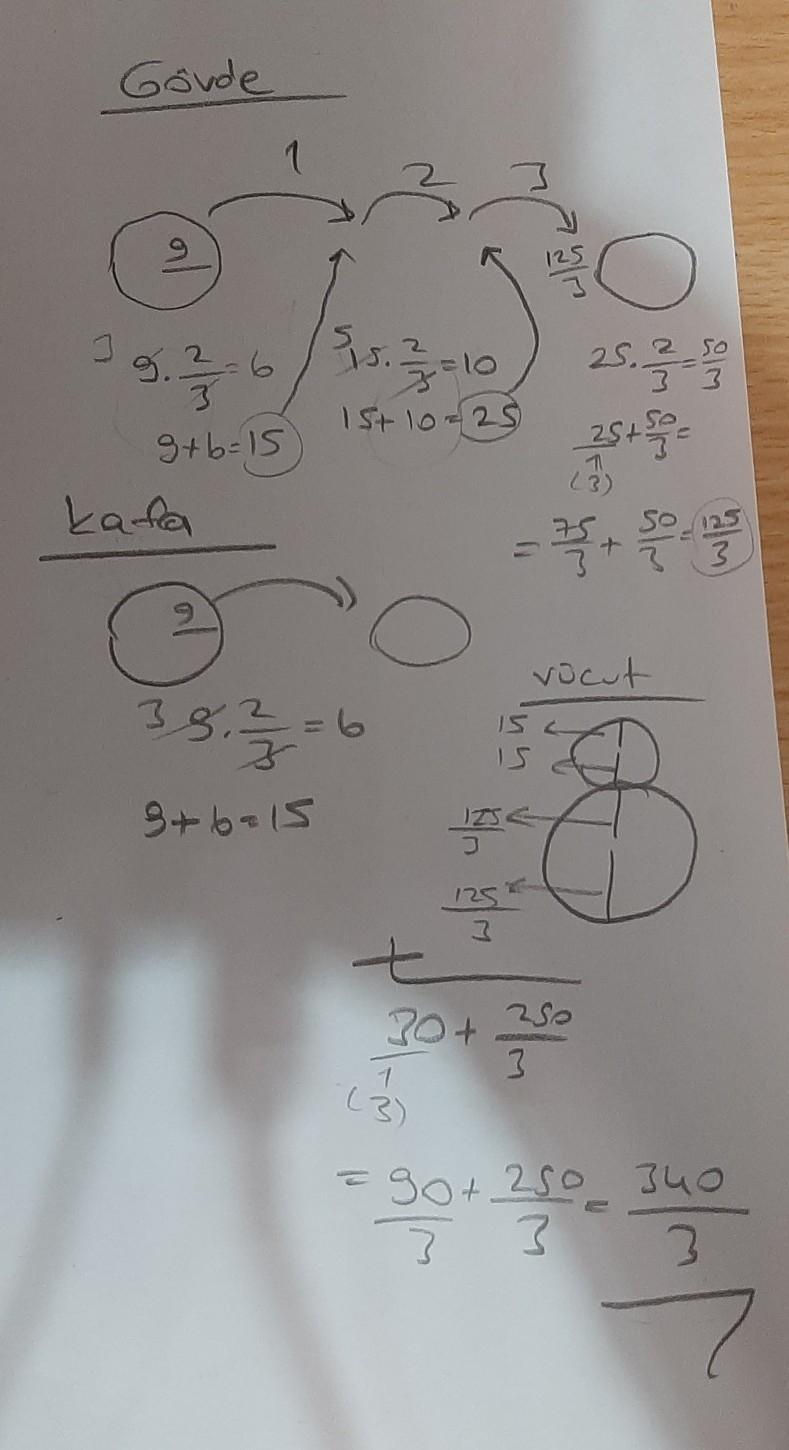 Gövde
1 2 3
9
125/3
3 9 . 2/3 = 6
9+6=15
5 15 . 2/3 = 10
15+10=25
25 . 2/3 = 50/3
25/1 + 50/3 =
(3)
= 75/3 + 50/3 = 125/3
kafa
9
3 9 . 2/3 = 6
9+6=15
vücut
15
15
125/3
125/3
+
30/1 + 250/3
(3)
= 90/3 + 250/3 = 340/3